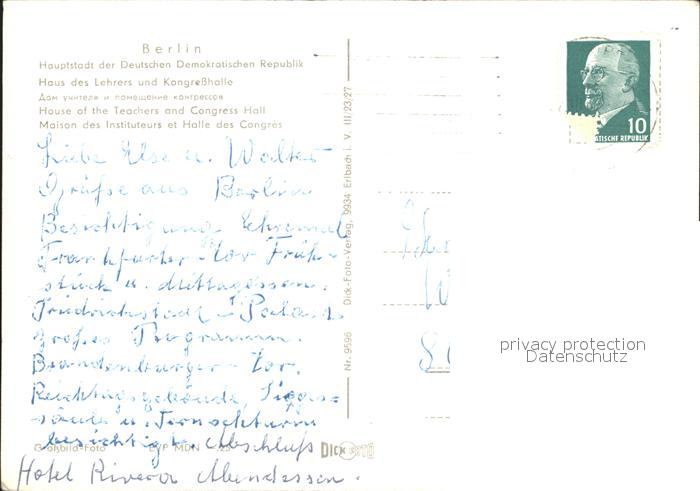 Berlin
Hauptstadt der Deutschen Demokratischen Republik
Haus des Lehrers und Kongreßhalle
Дом учителя и помещение конгрессов
House of the Teachers and Congress Hall
Maison des Instituteurs et Halle des Congrès
Liebe Else u. Walter
Grüße aus Berlin
Besichtigung Ehrenmal
Frankfurter-Tor Früh-
stück u. Mittagessen.
Friedrichstadt-Palast
großes Programm.
Brandenburger-Tor,
Reichtagsgebäude, Sieges-
säule u. Fernsehturm
besichtigt. Abschluß
Hotel Riviera Abendessen.
Großbild-Foto EVP MDN
DICK FOTO
Nr. 9596 Dick-Foto-Verlag, 9934 Erlbach i. V. III/23/27
10
ATISCHE REPUBLIK
privacy protection
Datenschutz